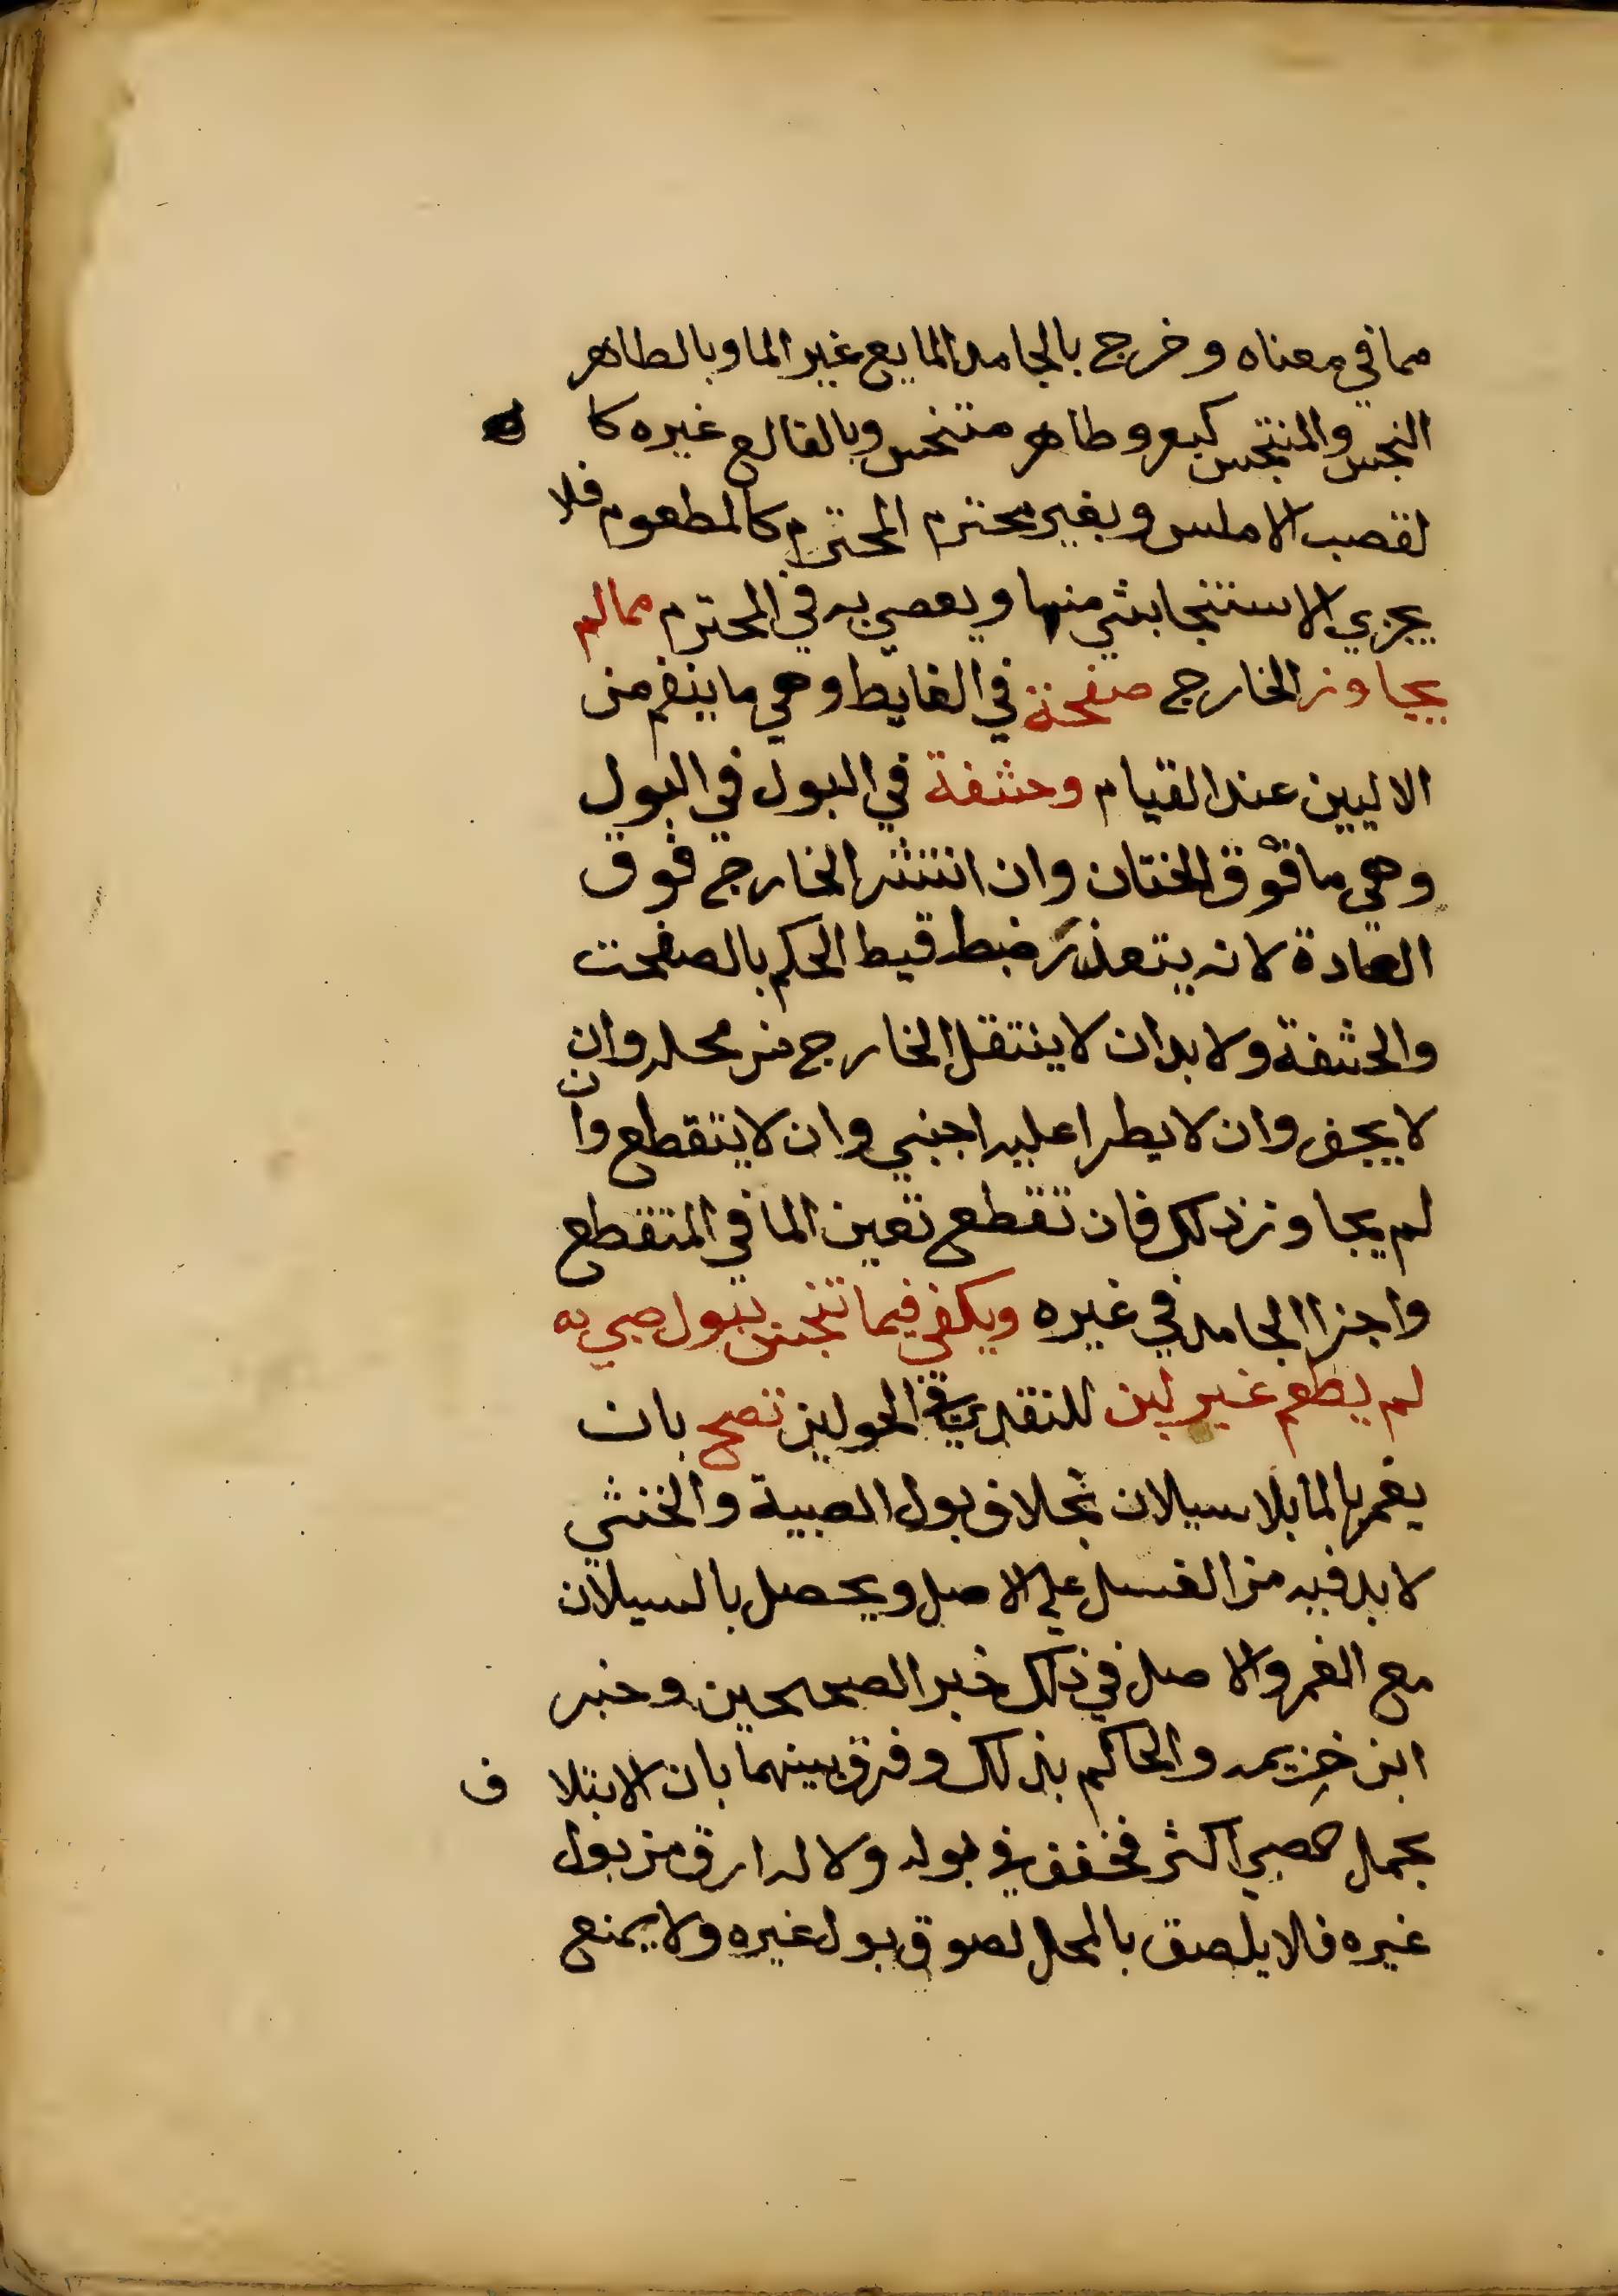 مما في معناه وخرج بالجامد المايع غير الما وبالطاهر
النجس والمتنجس كبعر وطاهر متنجس وبالقالع غيره كا
لقصب الاملس وبغير محترم المحترم كالمطعوم فلا
يجزي الاستنجا بشي منها ويعصي به في المحترم مما لم
يجاوز الخارج صفحة في الغايط وهي ما ينضم من
الاليين عند القيام وحشفة في البول في البول
وهي ما فوق الختان وان انتشر الخارج فوق
العادة لانه يتعذر ضبط فيط الحكم بالصفحت
والحشفة ولا بد ان لا ينتقل الخارج من محله وان
لا يجف وان لا يطرا عليه اجنبي وان لا يتقطع وان
لم يجاوز ذلك فان تقطع تعين الما في المتقطع
واجزا الجامد في غيره ويكفي فيما تنجس ببول صبي به
لم يطعم غير لبن للتغذي في الحولين نضح بان
يغمر بالما بلا سيلان بخلاف بول الصبية والخنثي
لا بد فيه من الغسل علي الاصل ويحصل بالسيلان
مع الغمر والاصل في ذلك خبر الصحيحين وخبر
ابن خزيمه والحاكم بذلك وفرق بينهما بان الابتلا ف
بحمل الصبي اكثر فخفف في بوله ولا له ارق من بول
غيره فلا يلصق بالمحل لصوق بول غيره ولا يمنع